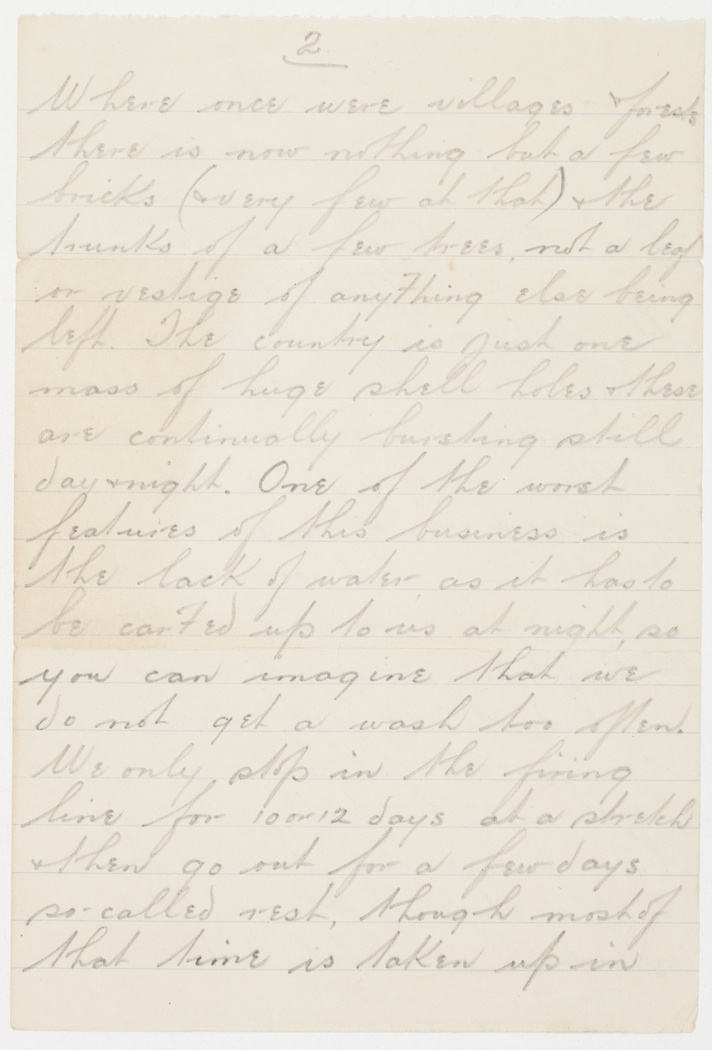 2
Where once were villages & forests
there is now nothing but a few
bricks (& very few at that) & the
trunks of a few trees, not a leaf
or vestige of anything else being
left. The country is just one
mass of huge shell holes & these
are continually bursting still
day & night. One of the worst
features of this business is
the lack of water, as it has to
be carted up to us at night, so
you can imagine that we
do not get a wash too often.
We only stop in the firing
line for 10 or 12 days at a stretch
& then go out for a few days
so-called rest, though most of
that time is taken up in